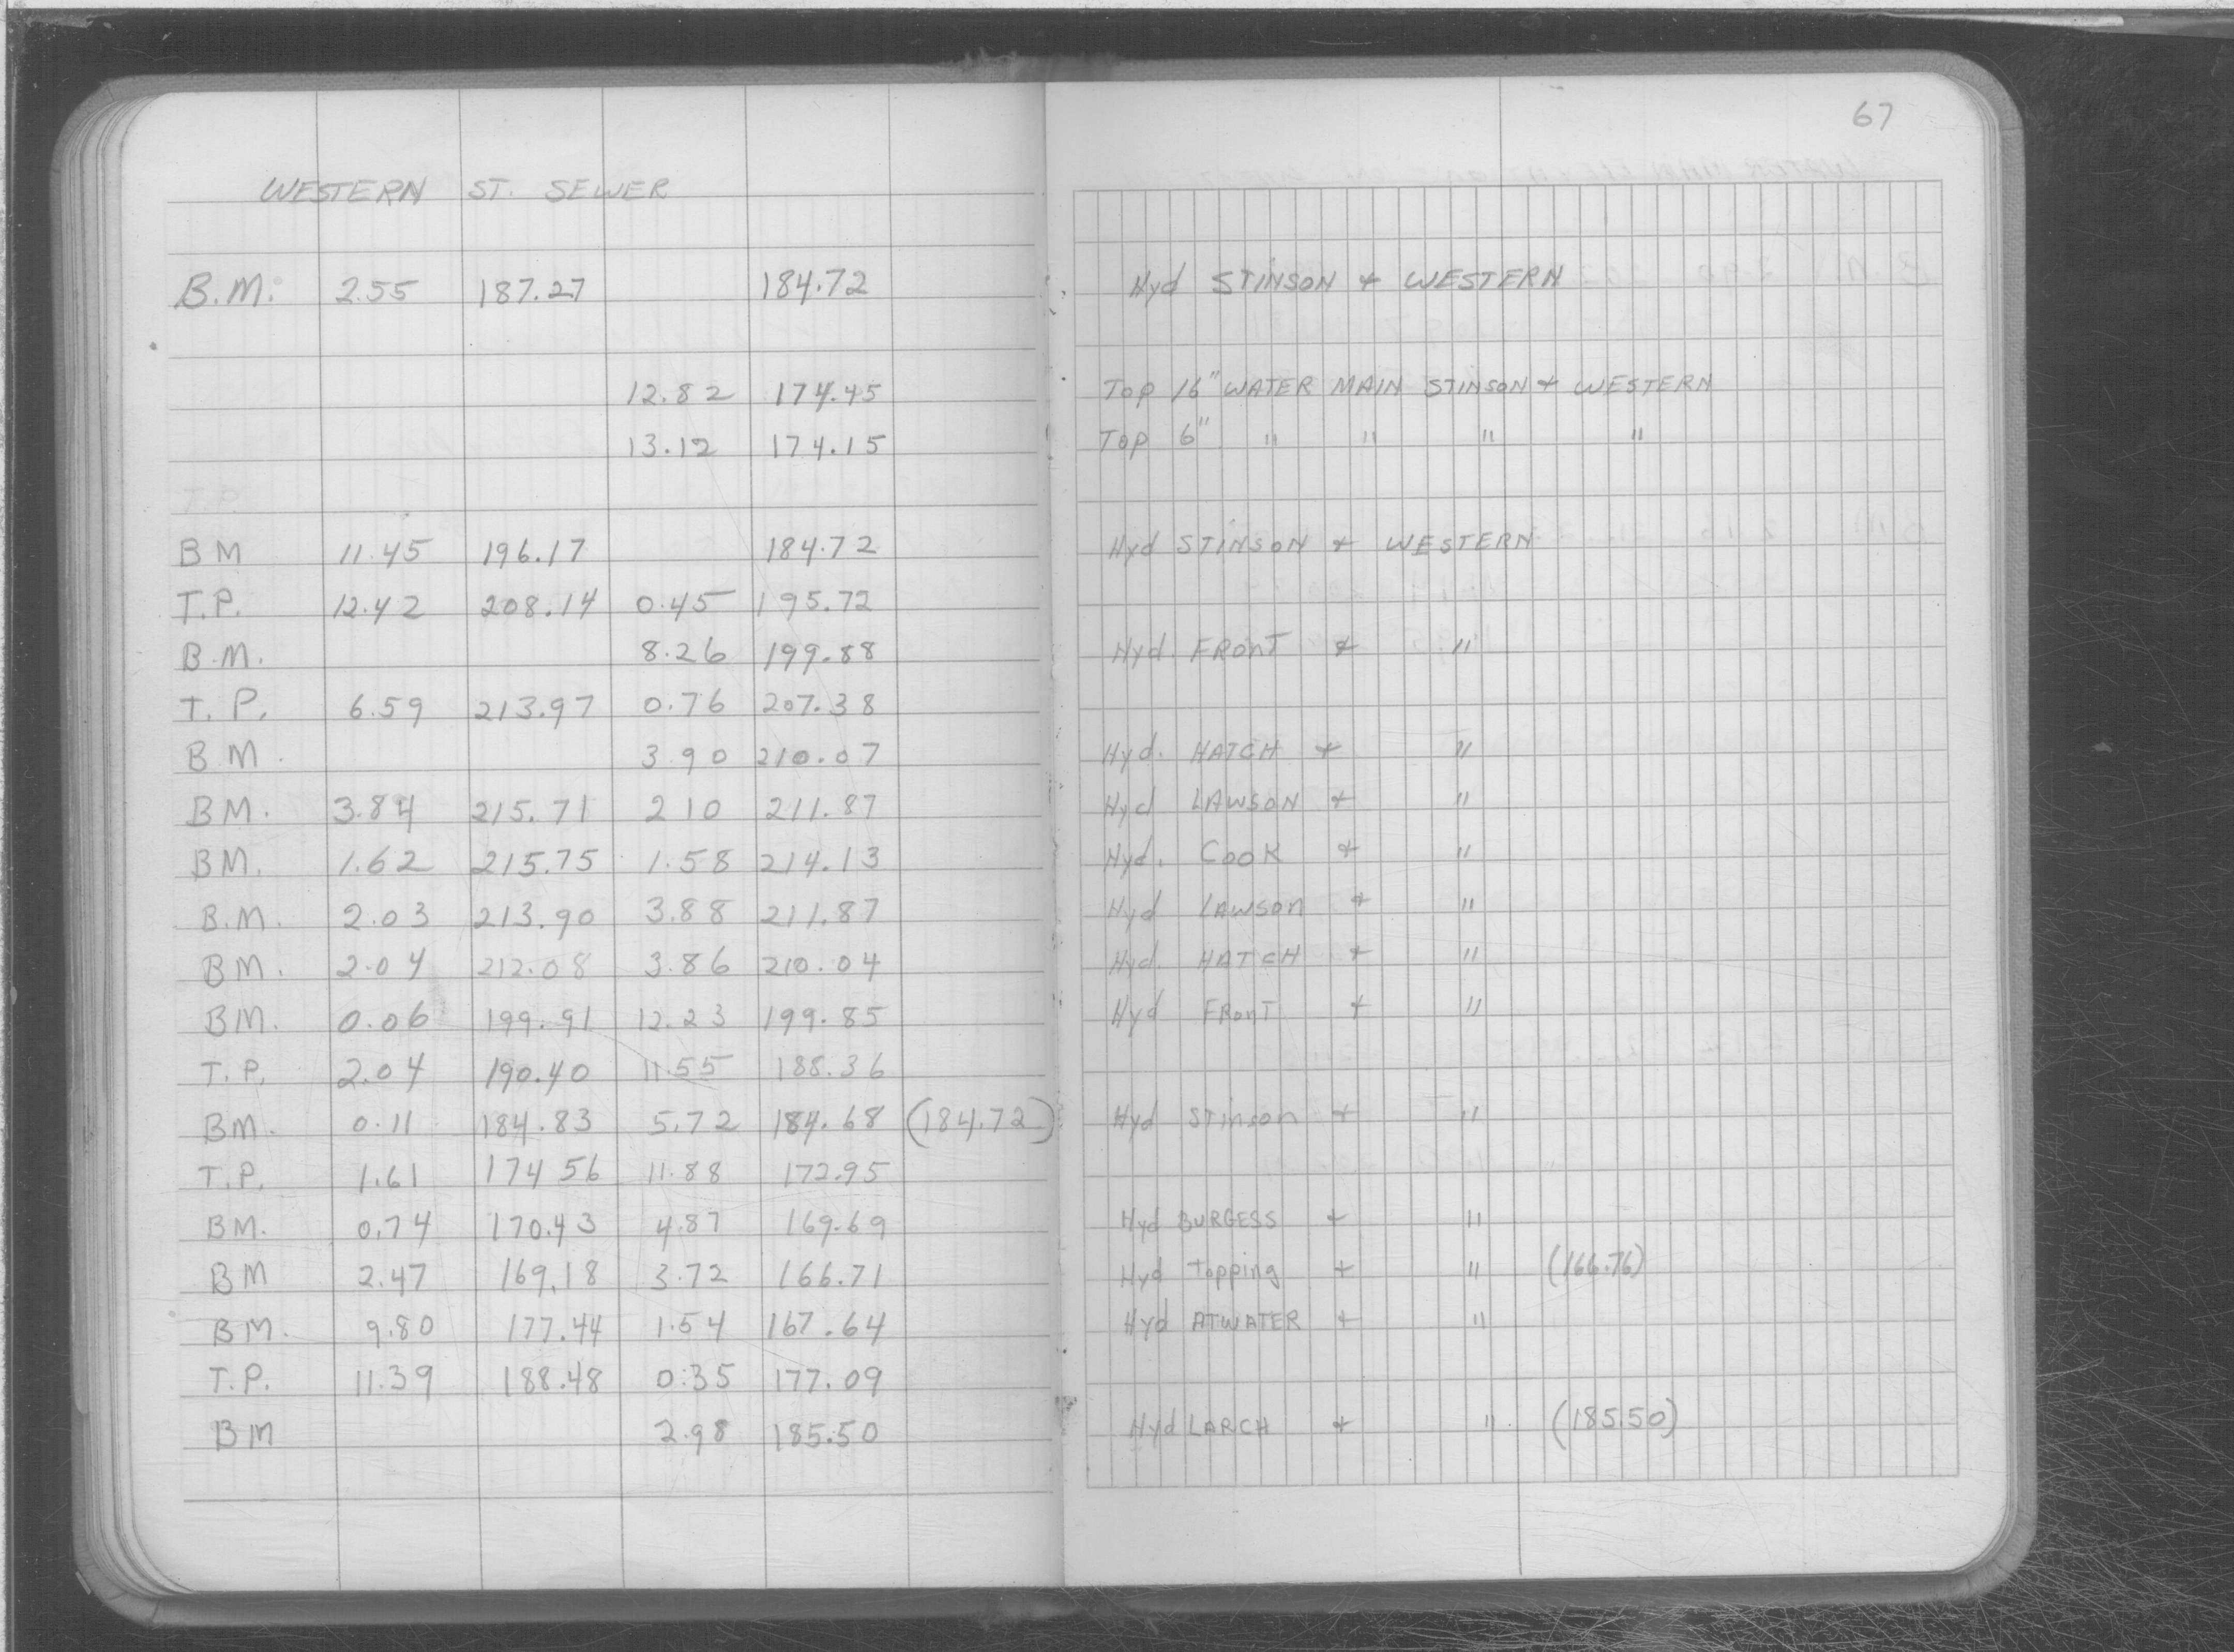 67
WESTERN ST. SEWER
B.M. 2.55 187.27 184.72 Hyd STINSON & WESTERN
12.82 174.45 Top 16" WATER MAIN STINSON & WESTERN
13.12 174.15 Top 6" " " " "
T.P.
BM 11.45 196.17 184.72 Hyd STINSON & WESTERN
T.P. 12.42 208.14 0.45 195.72
B.M. 8.26 199.88 Hyd. FRONT & "
T.P. 6.59 213.97 0.76 207.38
BM. 3.90 210.07 Hyd. HATCH & "
BM. 3.84 215.71 2 10 211.87 Hyd LAWSON & "
BM. 1.62 215.75 1.58 214.13 Hyd. COOK & "
B.M. 2.03 213.90 3.88 211.87 Hyd LAWSON & "
BM. 2.04 212.08 3.86 210.04 Hyd. HATCH & "
BM. 0.06 199.91 12.23 199.85 Hyd FRONT & "
T.P. 2.04 190.40 11.55 188.36
BM. 0.11 184.83 5.72 184.68 (184.72) Hyd Stinson & "
T.P. 1.61 174 56 11.88 172.95
BM. 0.74 170.43 4.87 169.69 Hyd BURGESS & "
BM 2.47 169.18 3.72 166.71 Hyd Topping & " (166.76)
BM. 9.80 177.44 1.54 167.64 Hyd ATWATER & "
T.P. 11.39 188.48 0.35 177.09
BM 2.98 185.50 Hyd LARCH & " (185.50)